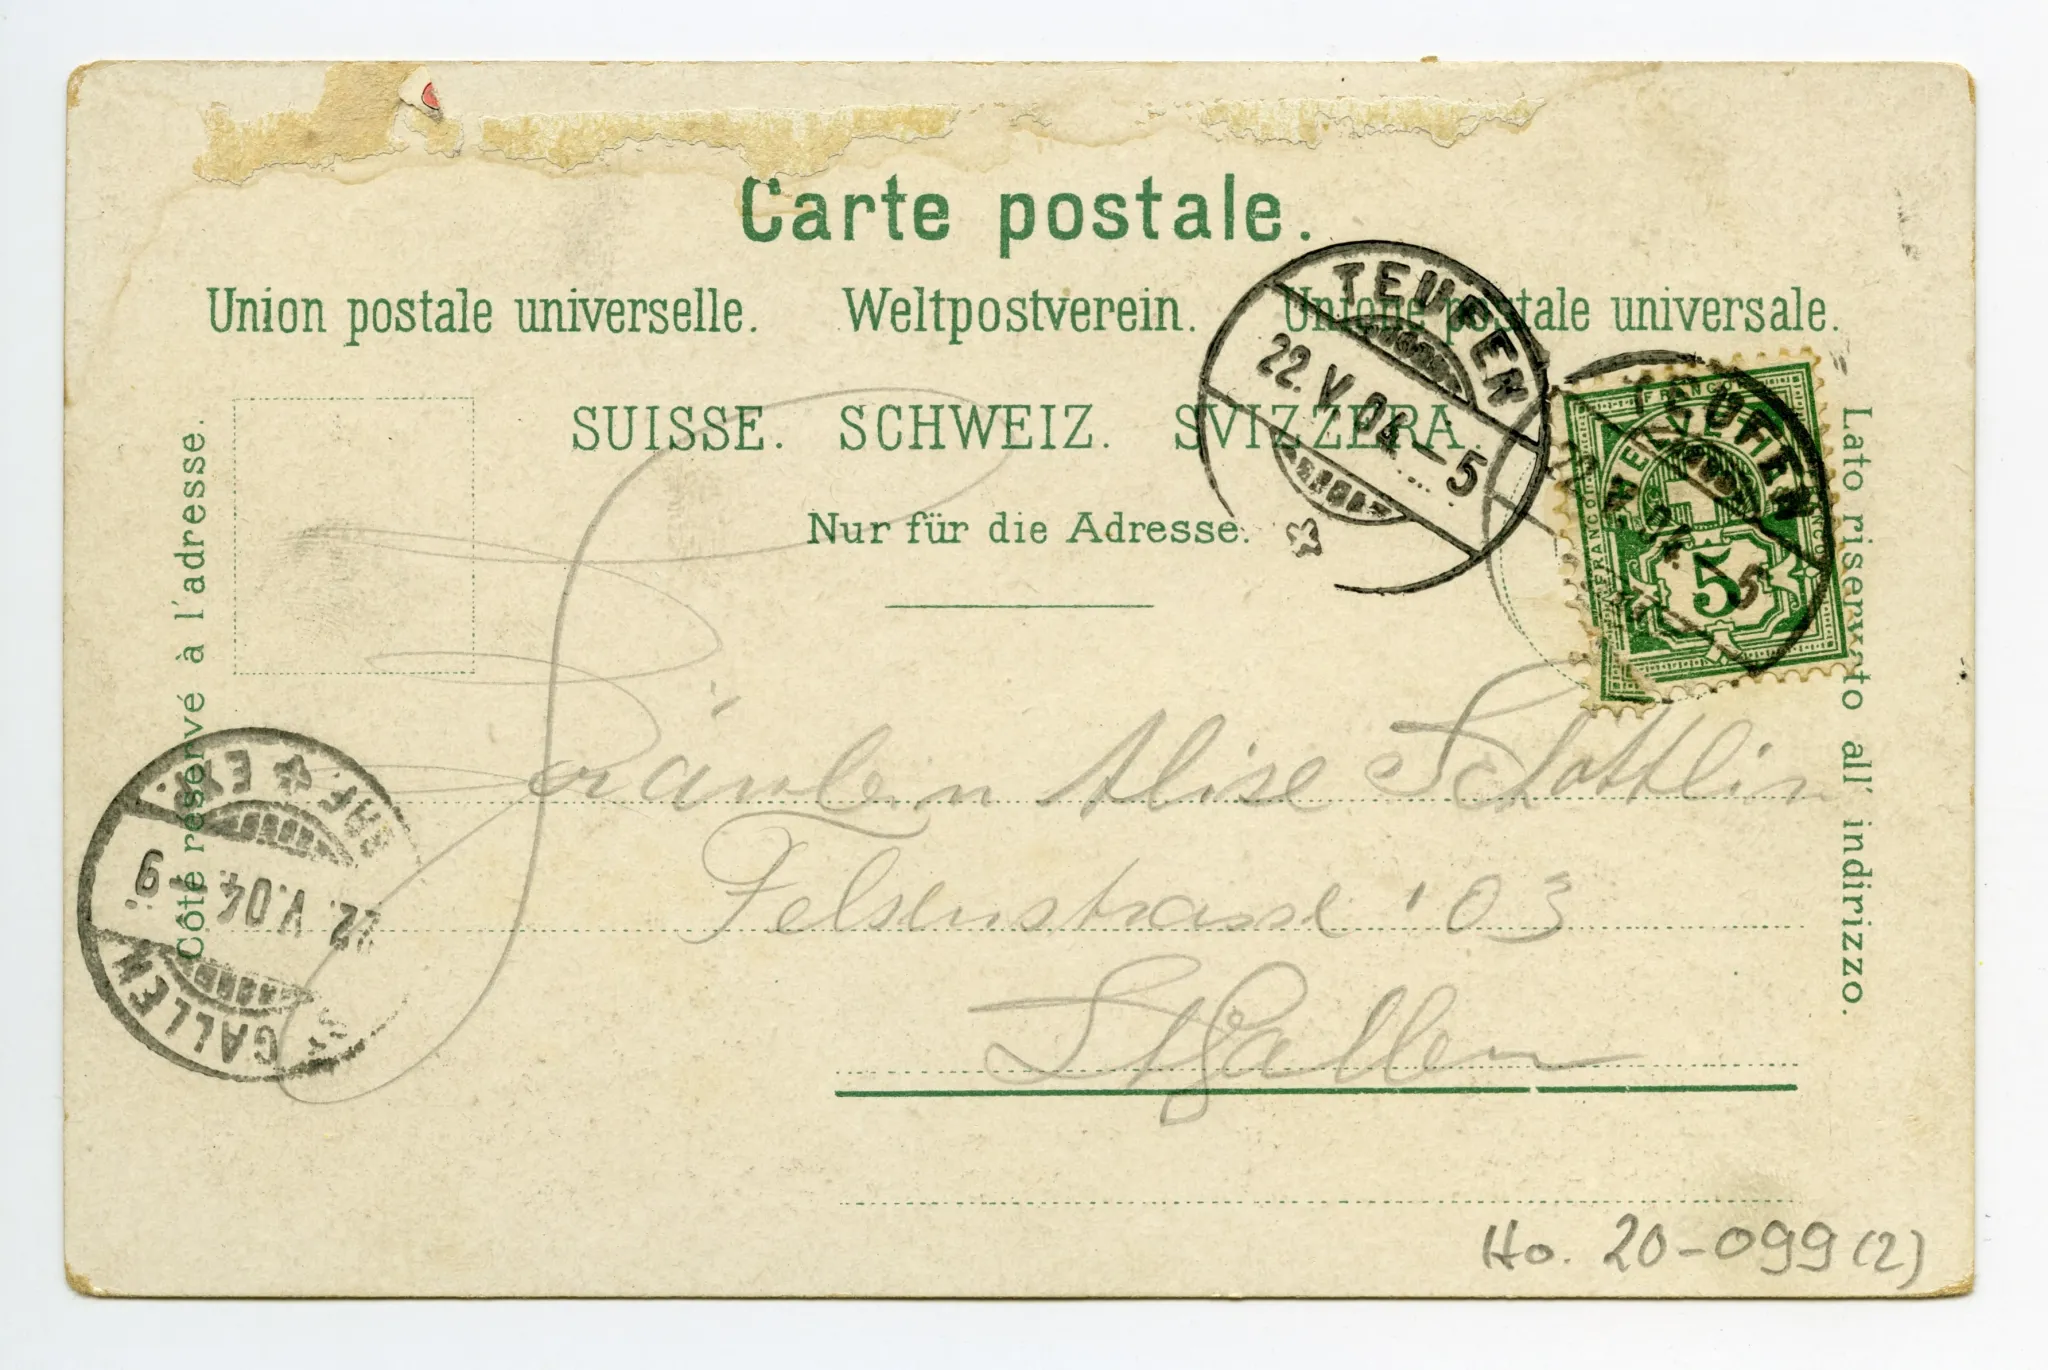 Carte postale.
Union postale universelle. Weltpostverein. Unione postale universale.
SUISSE. SCHWEIZ. SVIZZERA.
Nur für die Adresse.
Côté reservé à l'adresse.
Lato riservato all' indirizzo.
TEUFEN
22. V. 04. – 5
TEUFEN
FRANCO
HELVETIA
5
Fräulein Alise Schottlin
Felsenstrasse 103
St Gallen
ST. GALLEN
22. V. 04. – 9
BRF. EXP.
Ho. 20-099 (2)